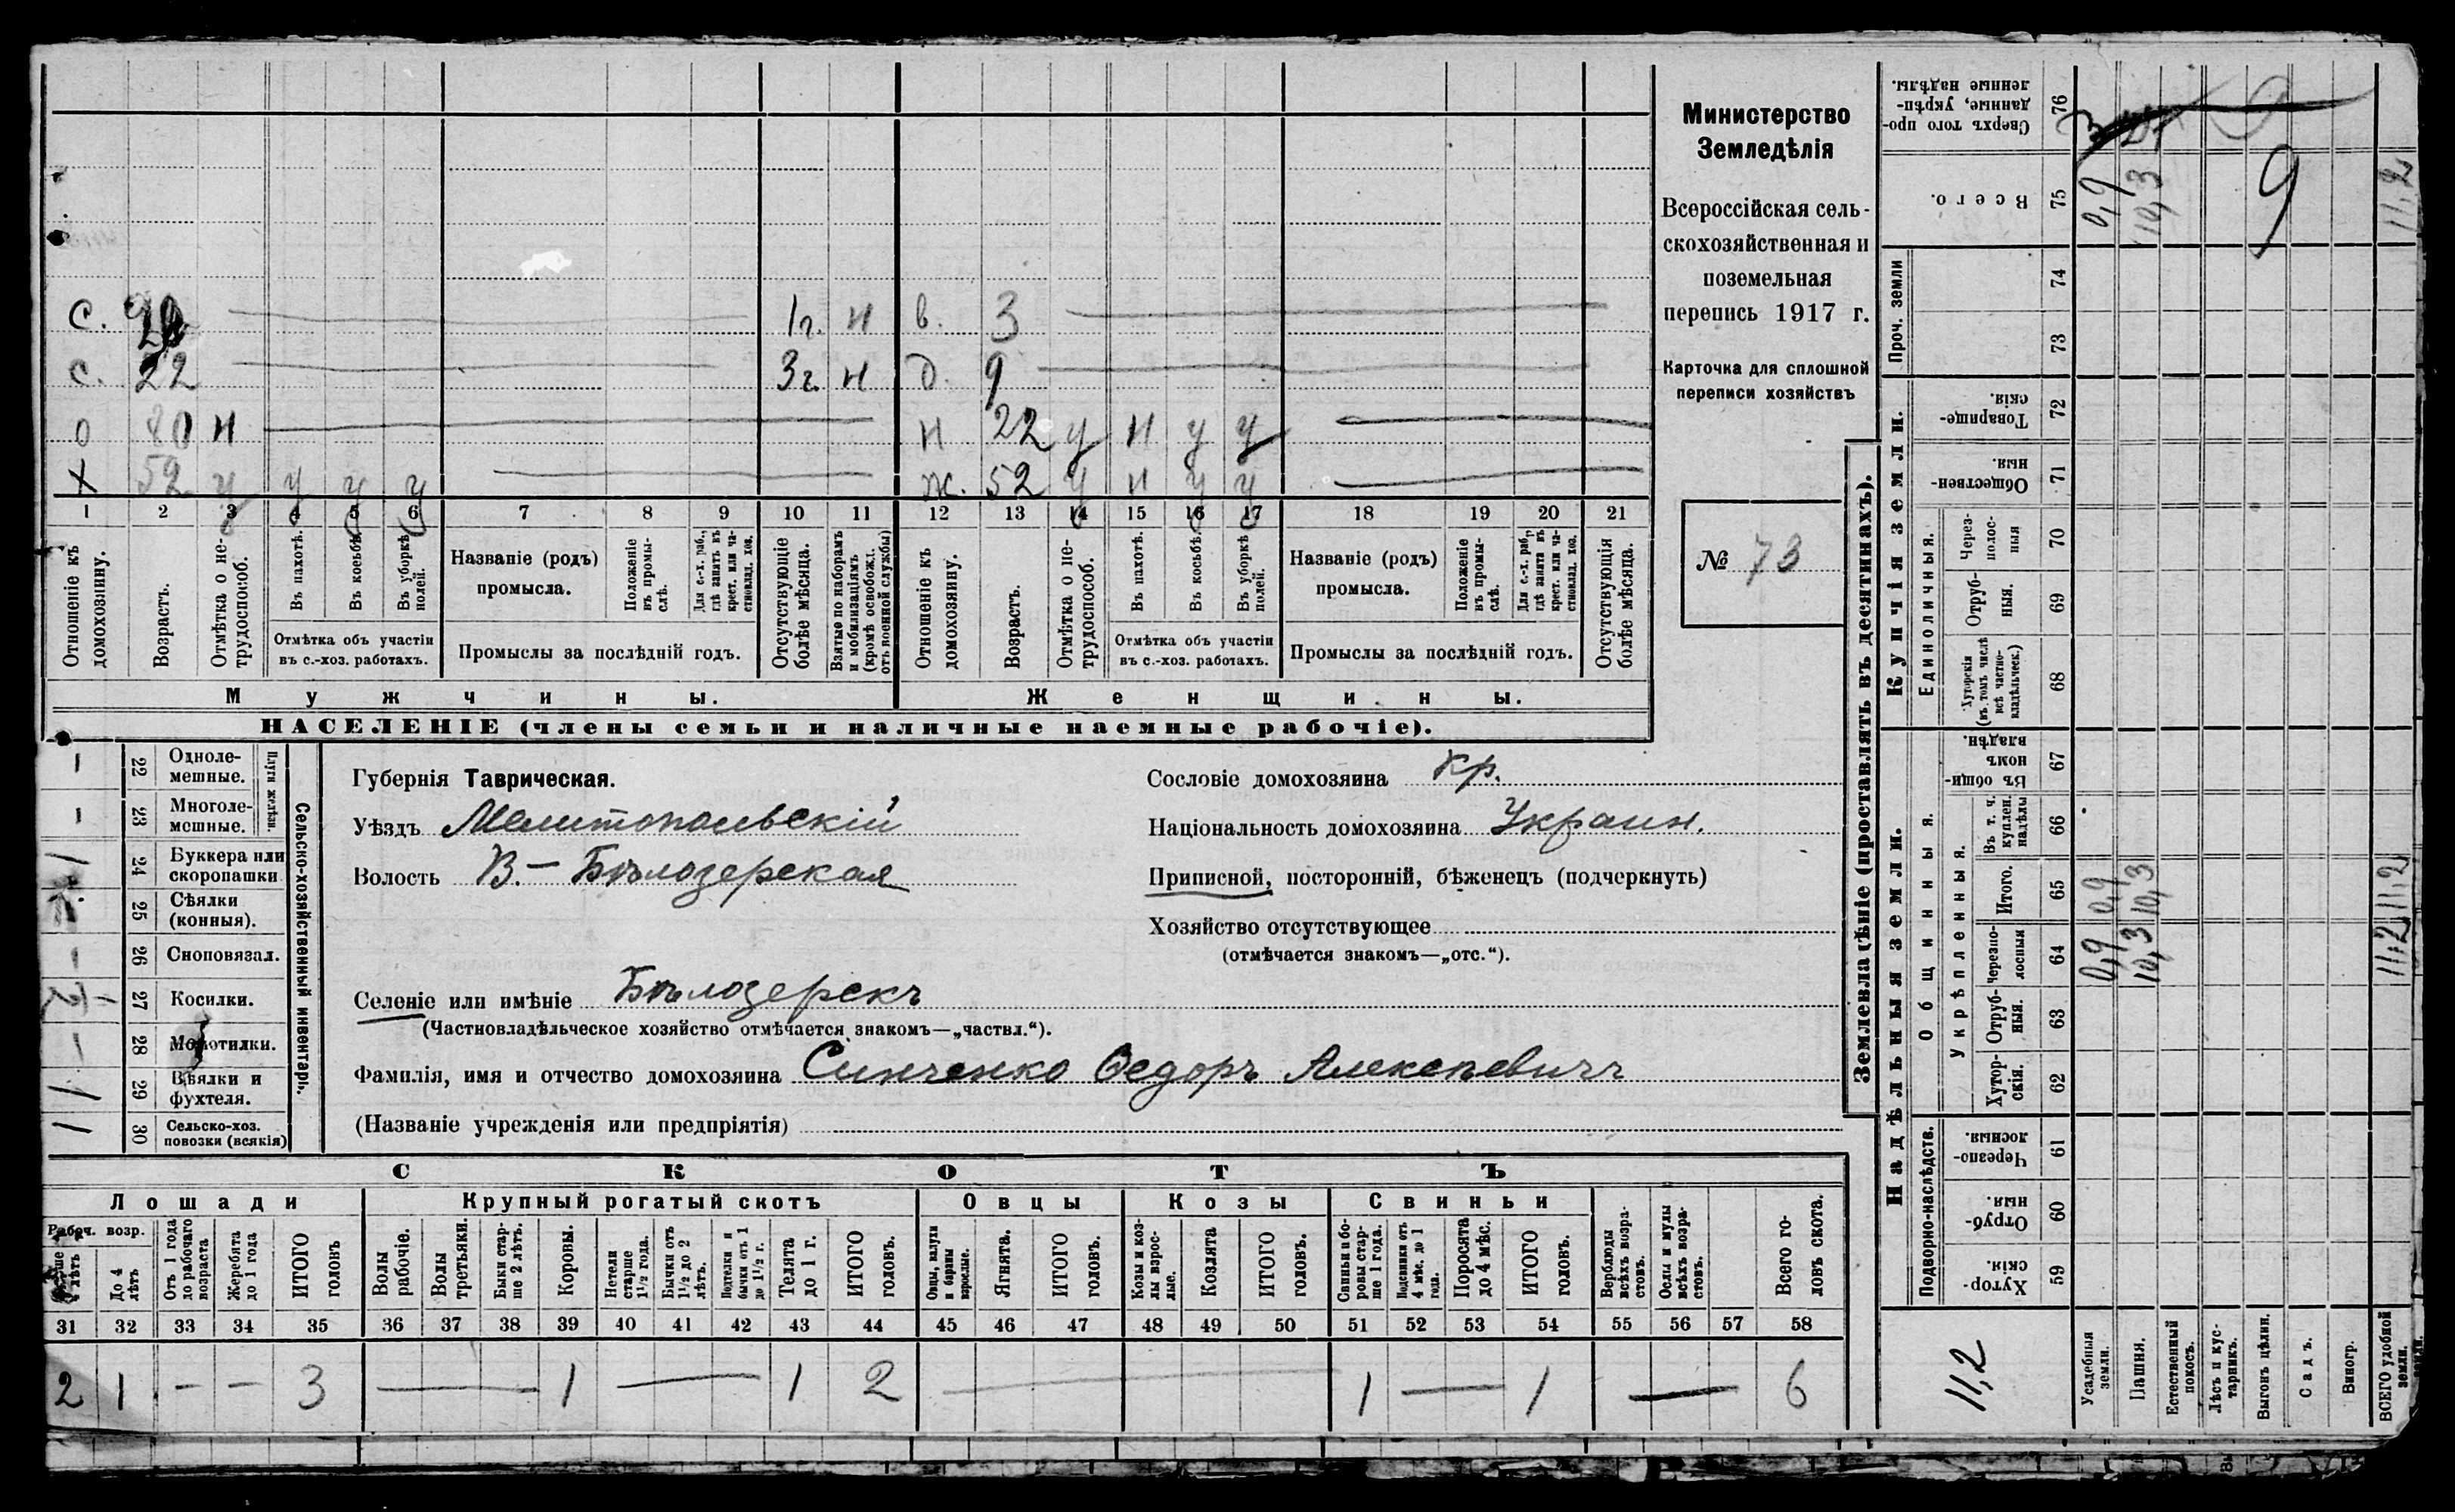 Министерство
Земледѣлія
Всероссійская сель-
скохозяйственная и
поземельная
перепись 1917 г.
Карточка для сплошной
переписи хозяйствъ
№ 73
с. 22 3г. н д. 9
о 80 н н 22 у н у у
х 52 у у у у ж. 52 у н у у
с. 1г. н в. 3
1 2 3 4 5 6 7 8 9 10 11 12 13 14 15 16 17 18 19 20 21
Отношеніе къ домохозяину.
Возрастъ.
Отмѣтка о не-трудоспособ.
Въ пахотѣ.
Въ косьбѣ.
Въ уборкѣ полей.
Отмѣтка объ участіи
въ с.-хоз. работахъ.
Названіе (родъ)
промысла.
Положеніе въ промы-слѣ.
Для с.-х. раб., гдѣ занятъ въ крест. или ча-стновлад. хоз.
Промыслы за послѣдній годъ.
Отсутствующіе болѣе мѣсяца.
Взятые по наборамъ и мобилизаціямъ (кромѣ освобожд. отъ военной службы)
Отношеніе къ домохозяину.
Возрастъ.
Отмѣтка о не-трудоспособ.
Въ пахотѣ.
Въ косьбѣ.
Въ уборкѣ полей.
Отмѣтка объ участіи
въ с.-хоз. работахъ.
Названіе (родъ)
промысла.
Положеніе въ промы-слѣ.
Для с.-х. раб., гдѣ занята въ крест. или ча-стновлад. хоз.
Промыслы за послѣдній годъ.
Отсутствующія болѣе мѣсяца.
Мужчины.
Женщины.
НАСЕЛЕНІЕ (члены семьи и наличные наемные рабочіе).
Сельско-хозяйственный инвентарь.
Плуги желѣзн.
22 Одноле-мешные.
23 Многоле-мешные.
24 Буккера или скоропашки
25 Сѣялки (конныя).
26 Сноповязал.
27 Косилки.
28 Молотилки.
1 29 Вѣялки и фухтеля.
1 30 Сельско-хоз. повозки (всякія)
Губернія Таврическая.
Уѣздъ Мелитопольскій
Волость В.-Бѣлозерская
Селеніе или имѣніе Бѣлозерскъ
(Частновладѣльческое хозяйство отмѣчается знакомъ—„частвл.“).
Фамилія, имя и отчество домохозяина Синченко Ѳедоръ Алексѣевичъ
(Названіе учрежденія или предпріятія)
Сословіе домохозяина кр.
Національность домохозяина Украин.
Приписной, посторонній, бѣженецъ (подчеркнуть)
Хозяйство отсутствующее
(отмѣчается знакомъ—„отс.“).
СКОТЪ
Лошади Крупный рогатый скотъ Овцы Козы Свиньи
Рабоч. возр.
До 4 лѣтъ
Отъ 1 года до рабочаго возраста
Жеребята до 1 года
ИТОГО головъ
Волы рабочіе.
Волы третьяки.
Быки стар-ше 2 лѣтъ.
Коровы.
Нетели старше 1½ года.
Бычки отъ 1½ до 2 лѣтъ.
Подтелки и бычки отъ 1 до 1½ г.
Телята до 1 г.
ИТОГО головъ.
Овцы, валухи и бараны взрослые.
Ягнята.
ИТОГО головъ.
Козы и коз-лы взрос-лые.
Козлята
ИТОГО головъ.
Свиньи и бо-ровы стар-ше 1 года.
Подсвинки отъ 4 мѣс. до 1 года.
Поросята до 4 мѣс.
ИТОГО головъ.
Верблюды всѣхъ возра-стовъ.
Ослы и мулы всѣхъ возра-стовъ.
Всего го-ловъ скота.
31 32 33 34 35 36 37 38 39 40 41 42 43 44 45 46 47 48 49 50 51 52 53 54 55 56 57 58
2 1 — — 3 — 1 — 1 2 — 1 — 1 — 6
Землевладѣніе (проставлять въ десятинахъ).
Надѣльныя земли.
Купчія земли.
Проч. земли
Подворно-наслѣдств.
Общинныя.
Укрѣпленныя.
Единоличныя.
Хутор-скія. 59
Отруб-ныя. 60
Черезпо-лосныя. 61
Хутор-скія. 62
Отруб-ныя. 63
Черезпо-лосныя 64 0,9 10,3 11,2
Итого. 65 0,9 10,3 11,2
Въ т. ч. куплен. надѣлы 66
Въ общин-номъ владѣн. 67
Хуторскія (въ томъ числѣ всѣ частно-владѣльческ.) 68
Отруб-ныя. 69
Через-полос-ныя 70
Обществен-ныя. 71
Товарище-скія. 72
73
74
Всего. 75 0,9 10,3 9 11,2
Сверхъ того про-данные, укрѣп-ленные надѣлы. 76
11,2
Усадебныя земли.
Пашня.
Естественный покосъ.
Лѣсъ и кус-тарникъ.
Выгонъ цѣлин.
Садъ.
Виногр.
ВСЕГО удобной земли.